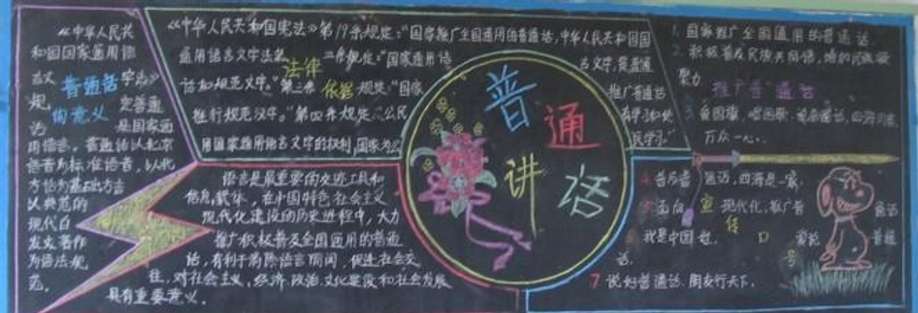 《中华人民共
和国国家通用语
言文字法》
规定普通
话是国家通
用语言。普通话以北京
语音为标准语音，以北
方话为基础方言
以典范的
现代白
话文著作
为语法规
范。
普通话
的意义
《中华人民共和国宪法》第19条规定："国家推广全国通用的普通话，中华人民共和国国
通用语言文字法第二条规定："国家通用语
言文字，是普通
话和规范文字。"第三条规定："国家
推广普通话
推行规范汉字。"第四条规定：公民
有学习和使
用国家通用语言文字的权利，国家为公
民学习"
法律
依据
语言是最重要的交际工具和
信息载体，在中国特色社会主义
现代化建设的历史进程中，大力
推广积极普及全国通用的普通
话，有利于消除语言隔阂，促进社会交
往，对社会主义，经济政治、文化建设和社会发展
具有重要意义。
普通话
讲
1. 国家推广全国通用的普通话
2. 积极普及民族共同语，增的民族凝
聚力
推广普通话
3. 爱国旗，唱国歌，说普通话，四海同心
万众一心。
4. 普及普通话，四海是一家。
5. 面向现代化，推广普通话
6. 我是中国娃，爱说普通
话。
宣传口号
7. 说好普通话、朋友行天下。